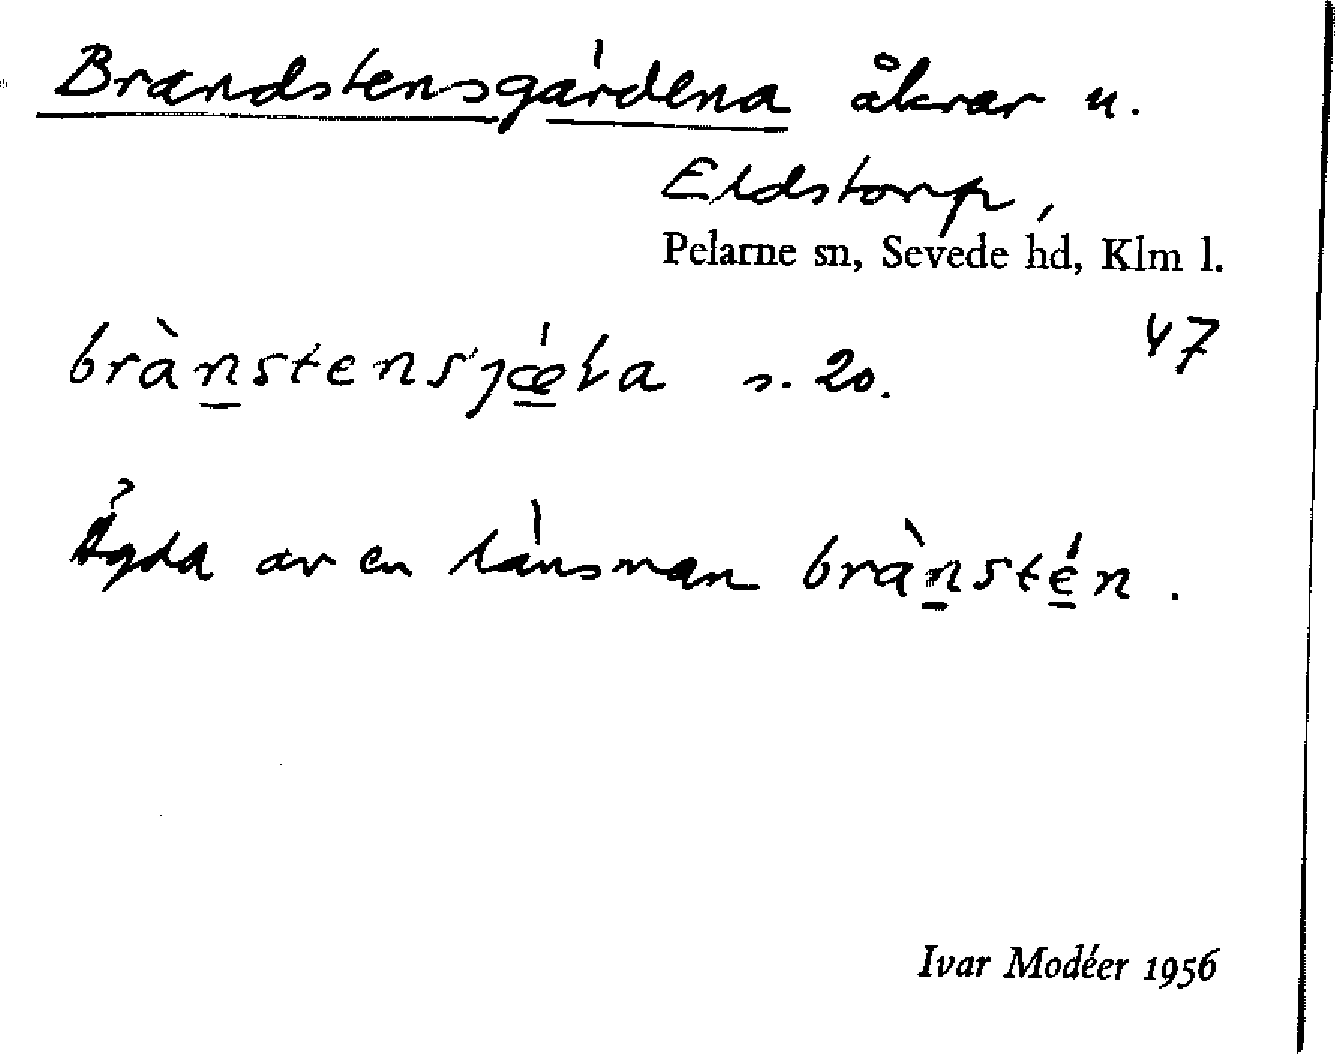 Brandstensgärdena åkrar u.
Eldstorp,
Pelarne sn, Sevede hd, Klm l.
47
brànstensjæ̀ta s. 20.
Ägda av en länsman brànstén.
Ivar Modéer 1956